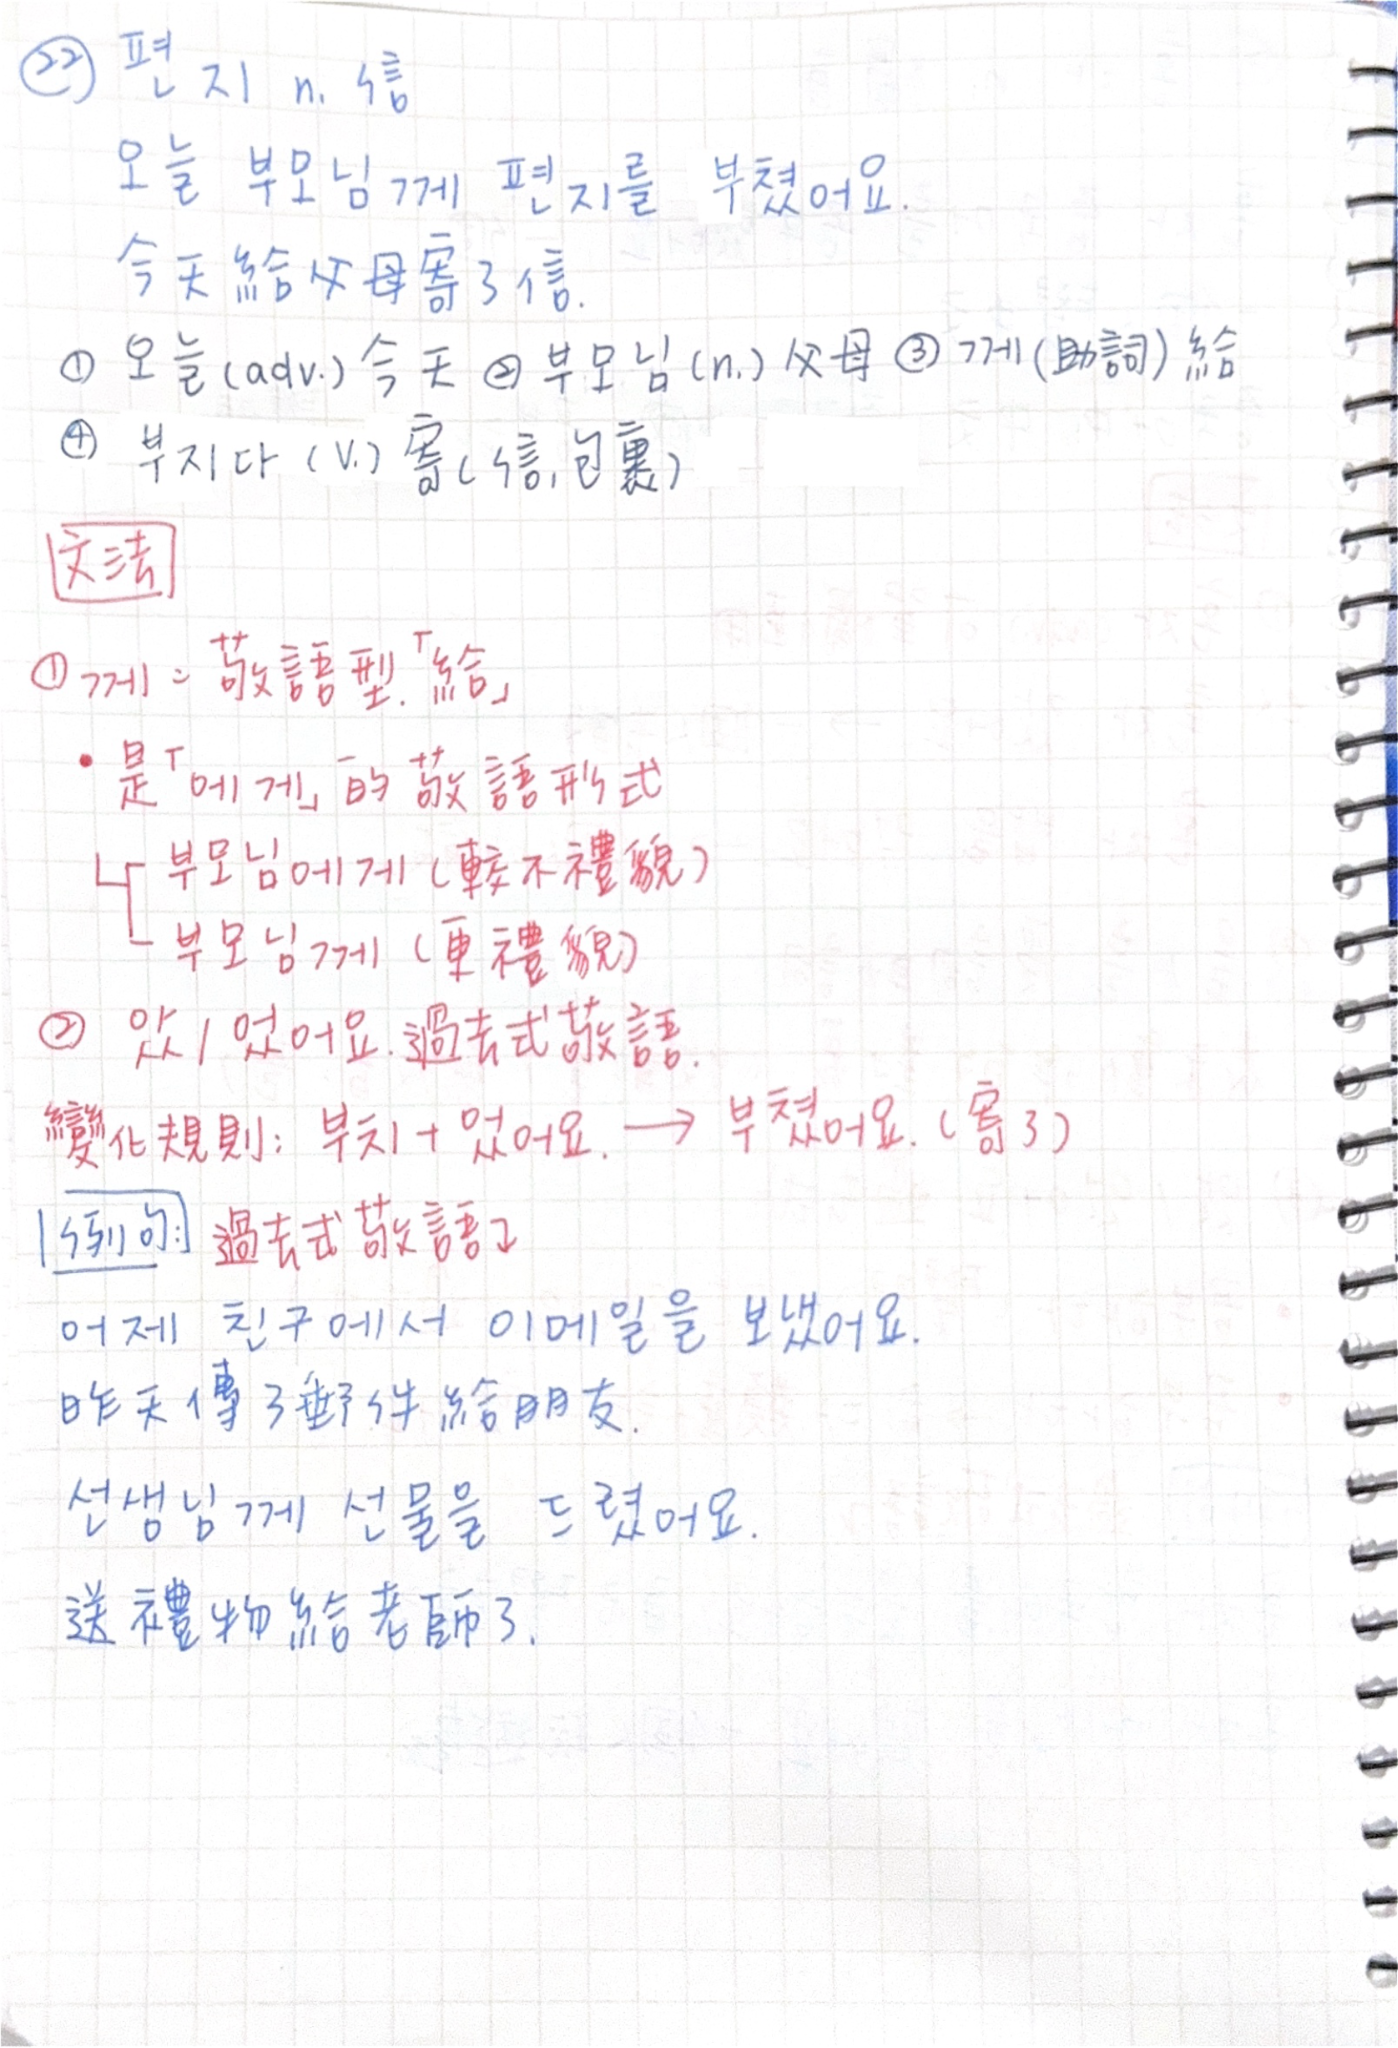 ㉒ 편지 n. 信
오늘 부모님께 편지를 부쳤어요.
今天給父母寄了信.
① 오늘(adv.) 今天 ② 부모님(n.) 父母 ③ 께(助詞) 給
④ 부지다 (v.) 寄(信,包裹)
文法
① 께: 敬語型.「給」
• 是「에게」的敬語形式
부모님에게 (較不禮貌)
부모님께 (更禮貌)
② 았/었어요. 過去式敬語.
變化規則: 부치+었어요. → 부쳤어요. (寄了)
例句: 過去式敬語
어제 친구에서 이메일을 보냈어요.
昨天傳了郵件給朋友.
선생님께 선물을 드렸어요.
送禮物給老師了.